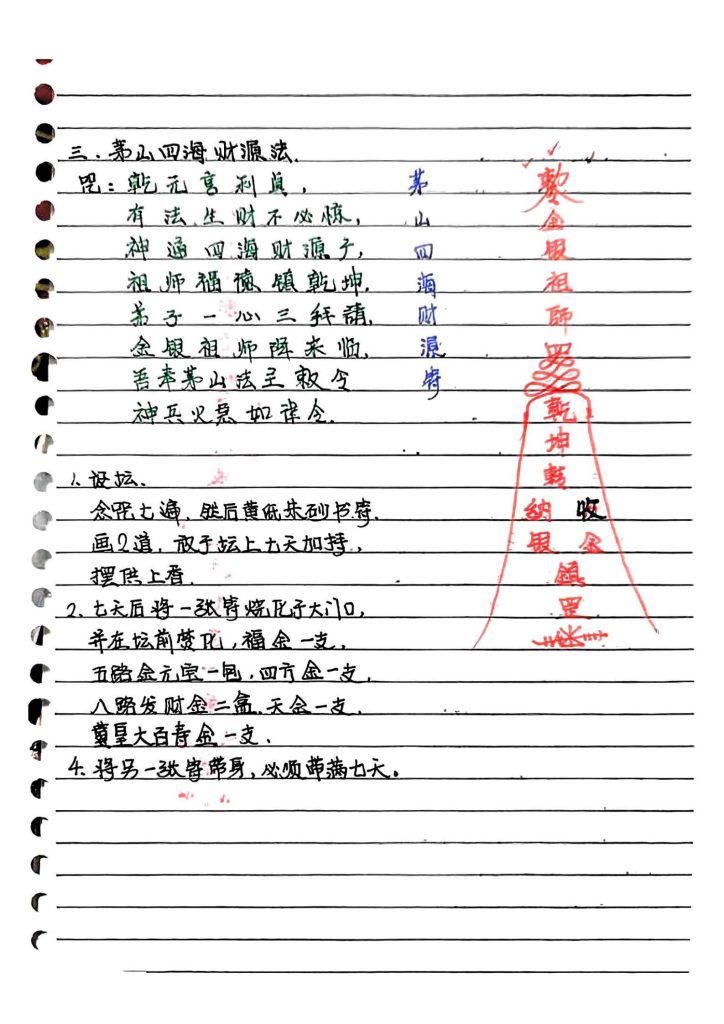 三、茅山四海财源法.
咒：乾元亨利貞，
有法生财不必愁，
神通四海财源子，
祖师福德镇乾坤.
弟子一心三拜請，
金银祖师降来临，
吾奉茅山法主敕令
神兵火急如律令.
茅山四海财源符
敕令
金银祖師罡
乾坤
納收
银金
鎮
罡
1.设坛.
念咒七遍，然后黄纸朱砂书符.
画2道，放于坛上七天加持，
摆供上香.
2.七天后将一张符烧化于大门口，
并在坛前焚化，福金一支.
五路金元宝一包，四方金一支，
八路发财金二盒.天金一支.
冀皇大百寿金一支.
4.将另一张符带身，必须带满七天。